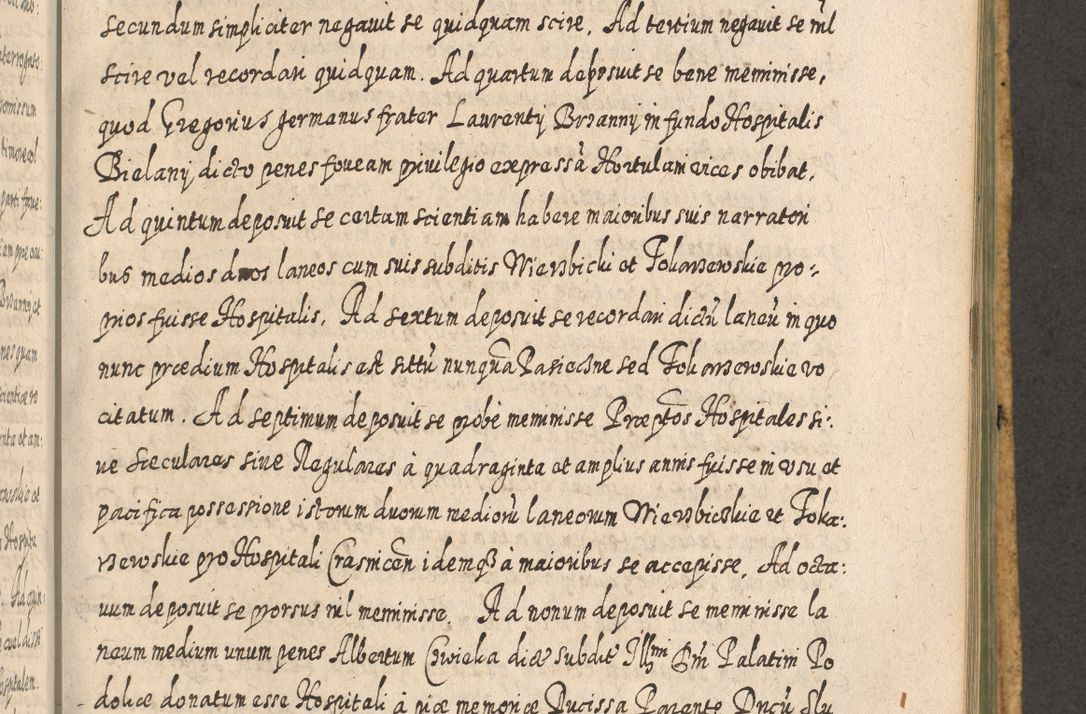 secundum simpliciter negauit se quidquam scire, Ad tertium negauit se nil
scire vel recordari quidquam. Ad quartum deposuit se bene meminisse,
quod Gregorius germanus frater Laurentij Brzanny in fundo Hospitalis
Bielany dicto penes foueam priuilegio expressà Hortulani vices obibat.
Ad quintum deposuit se certam scientiam habere maioribus suis narratori
bus medios duos laneos cum suis subditis Wierzbicki et Tokarzewskie pro-
prios fuisse Hospitalis. Ad sextum deposuit se recordari dictũ laneũ in quo
nunc prædium Hospitalis est sittũ nunquã Pasieczne sed Tokarzewskie vo
citatum. Ad septimum deposuit se probè meminisse Præptos Hospitales si:
ue sæculares siue Regulares à quadraginta et amplius annis fuisse in vsu et
pacifica possessione istorum duorum mediorũ laneorum Wierzbickie et Toka:
rzewskie pro Hospitali Crasnicen idemqz à maioribus se accepisse, Ad octa:
uum deposuit se prorsus nil meminisse. Ad nonum deposuit se meminisse la
neum medium unum penes Albertum Cwieka dict subdit Illmi Dni Palatini Po
doliæ donatum esse Hospitali à piæ memoriæ Ducissa Parente Ducũ Slu